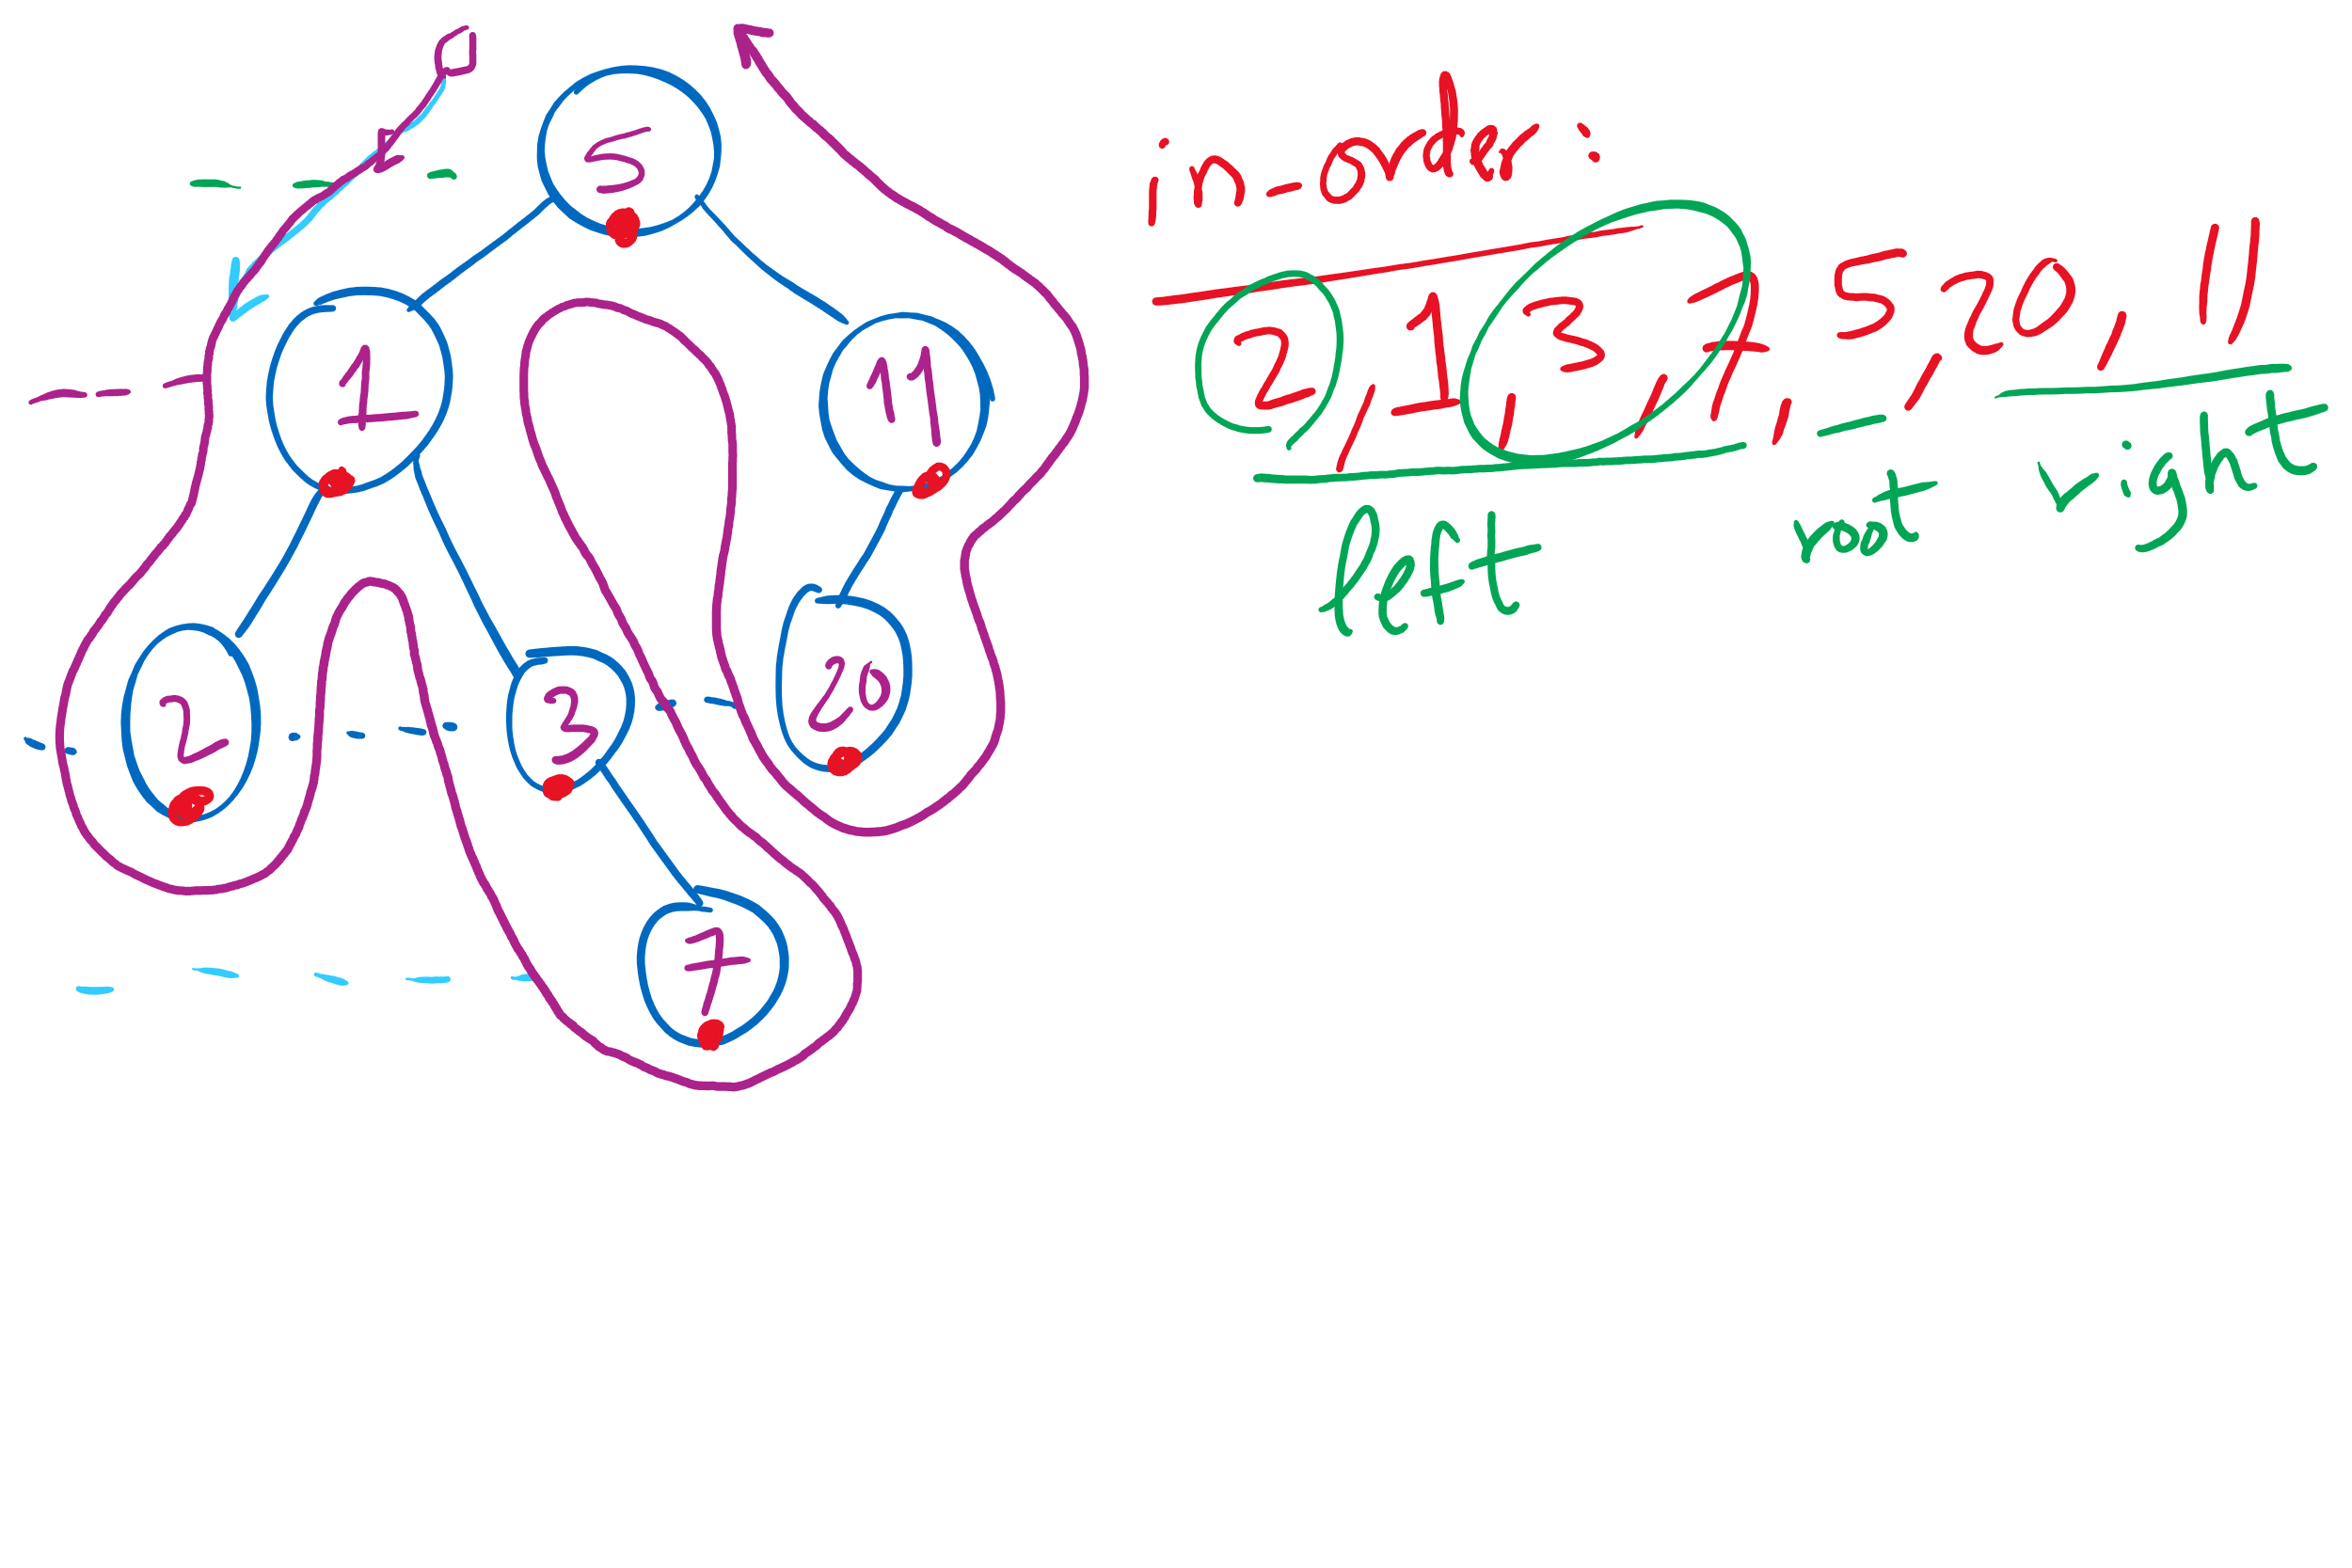 5
1
11
2
3
20
7
in-order:
2, 1, 3, 7, 5, 20, 11
left root right